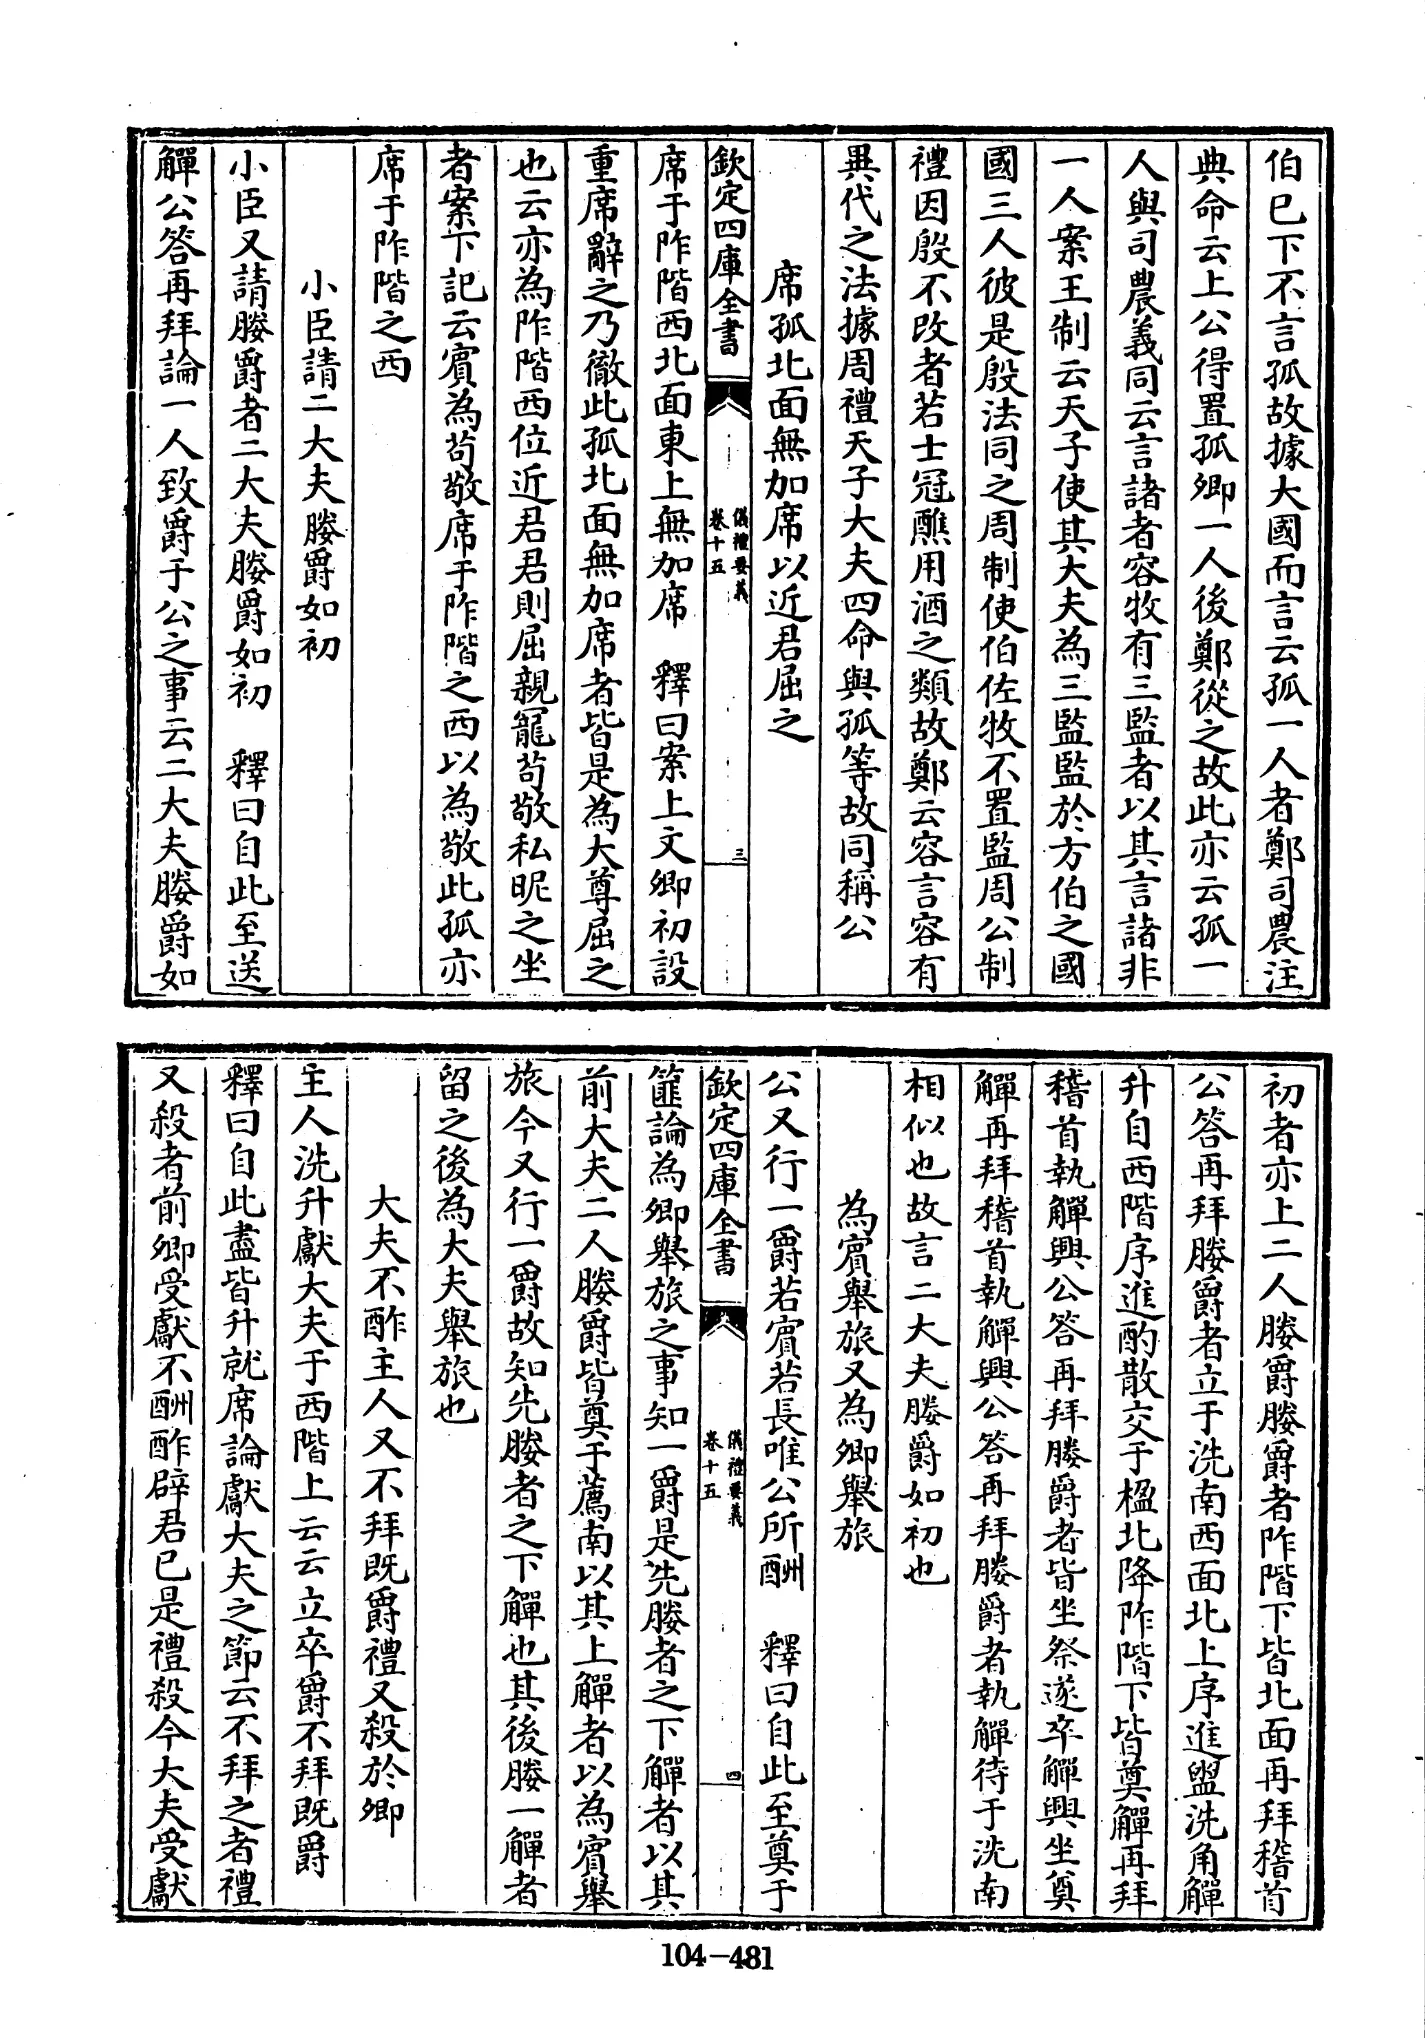 伯已下不言孤故據大國而言云孤一人者鄭司農注
典命云上公得置孤卿一人後鄭從之故此亦云孤一
人與司農義同云言諸者容牧有三監者以其言諸非
一人案王制云天子使其大夫為三監監於方伯之國
國三人彼是殷法同之周制使伯佐牧不置監周公制
禮因殷不改者若士冠醮用酒之類故鄭云容言容有
異代之法據周禮天子大夫四命與孤等故同稱公
席孤北面無加席以近君屈之
欽定四庫全書
儀禮要義
卷十五
三
席于阼階西北面東上無加席　釋曰案上文卿初設
重席辭之乃徹此孤北面無加席者皆是為大尊屈之
也云亦為阼階西位近君君則屈親寵苟敬私昵之坐
者案下記云賓為苟敬席于阼階之西以為敬此孤亦
席于阼階之西
小臣請二大夫媵爵如初
小臣又請媵爵者二大夫媵爵如初　釋曰自此至送
觶公答再拜論一人致爵于公之事云二大夫媵爵如
初者亦上二人媵爵媵爵者阼階下皆北面再拜稽首
公答再拜媵爵者立于洗南西面北上序進盥洗角觶
升自西階序進酌散交于楹北降阼階下皆奠觶再拜
稽首執觶興公答再拜媵爵者皆坐祭遂卒觶興坐奠
觶再拜稽首執觶興公答再拜媵爵者執觶待于洗南
相似也故言二大夫媵爵如初也
為賓舉旅又為卿舉旅
公又行一爵若賓若長唯公所酬　釋曰自此至奠于
欽定四庫全書
儀禮要義
卷十五
四
篚論為卿舉旅之事知一爵是先媵者之下觶者以其
前大夫二人媵爵皆奠于薦南以其上觶者以為賓舉
旅今又行一爵故知先媵者之下觶也其後媵一觶者
留之後為大夫舉旅也
大夫不酢主人又不拜既爵禮又殺於卿
主人洗升獻大夫于西階上云云立卒爵不拜既爵
釋曰自此盡皆升就席論獻大夫之節云不拜之者禮
又殺者前卿受獻不酬酢辟君已是禮殺今大夫受獻
104-481